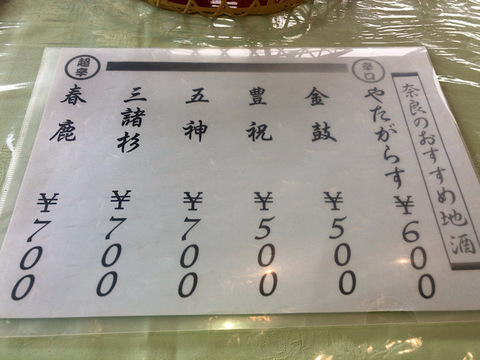 奈良のおすすめ地酒
辛口
やたがらす ¥600
金鼓 ¥500
豊祝 ¥500
五神 ¥700
三諸杉 ¥700
超辛
春鹿 ¥700